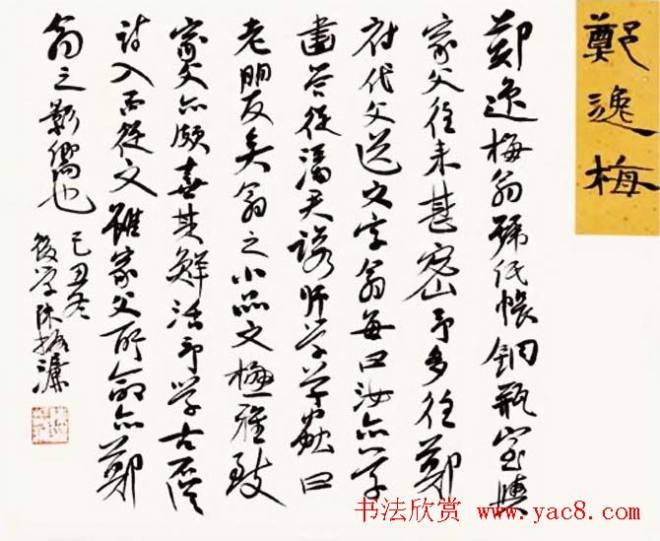 鄭逸梅
鄭逸梅翁號紙帳銅瓶室與
家父往来甚密予多往鄭
府代父送文字翁每曰汝亦学
畫答從潘君諾師学草蟲曰
老朋友矣翁之小品文極雅致
家父亦頗喜其鮮活予学古不從
詩入而從文雖家父所命亦鄭
翁之影也己丑冬
後学陳振濂
书法欣赏 www.yac8.com